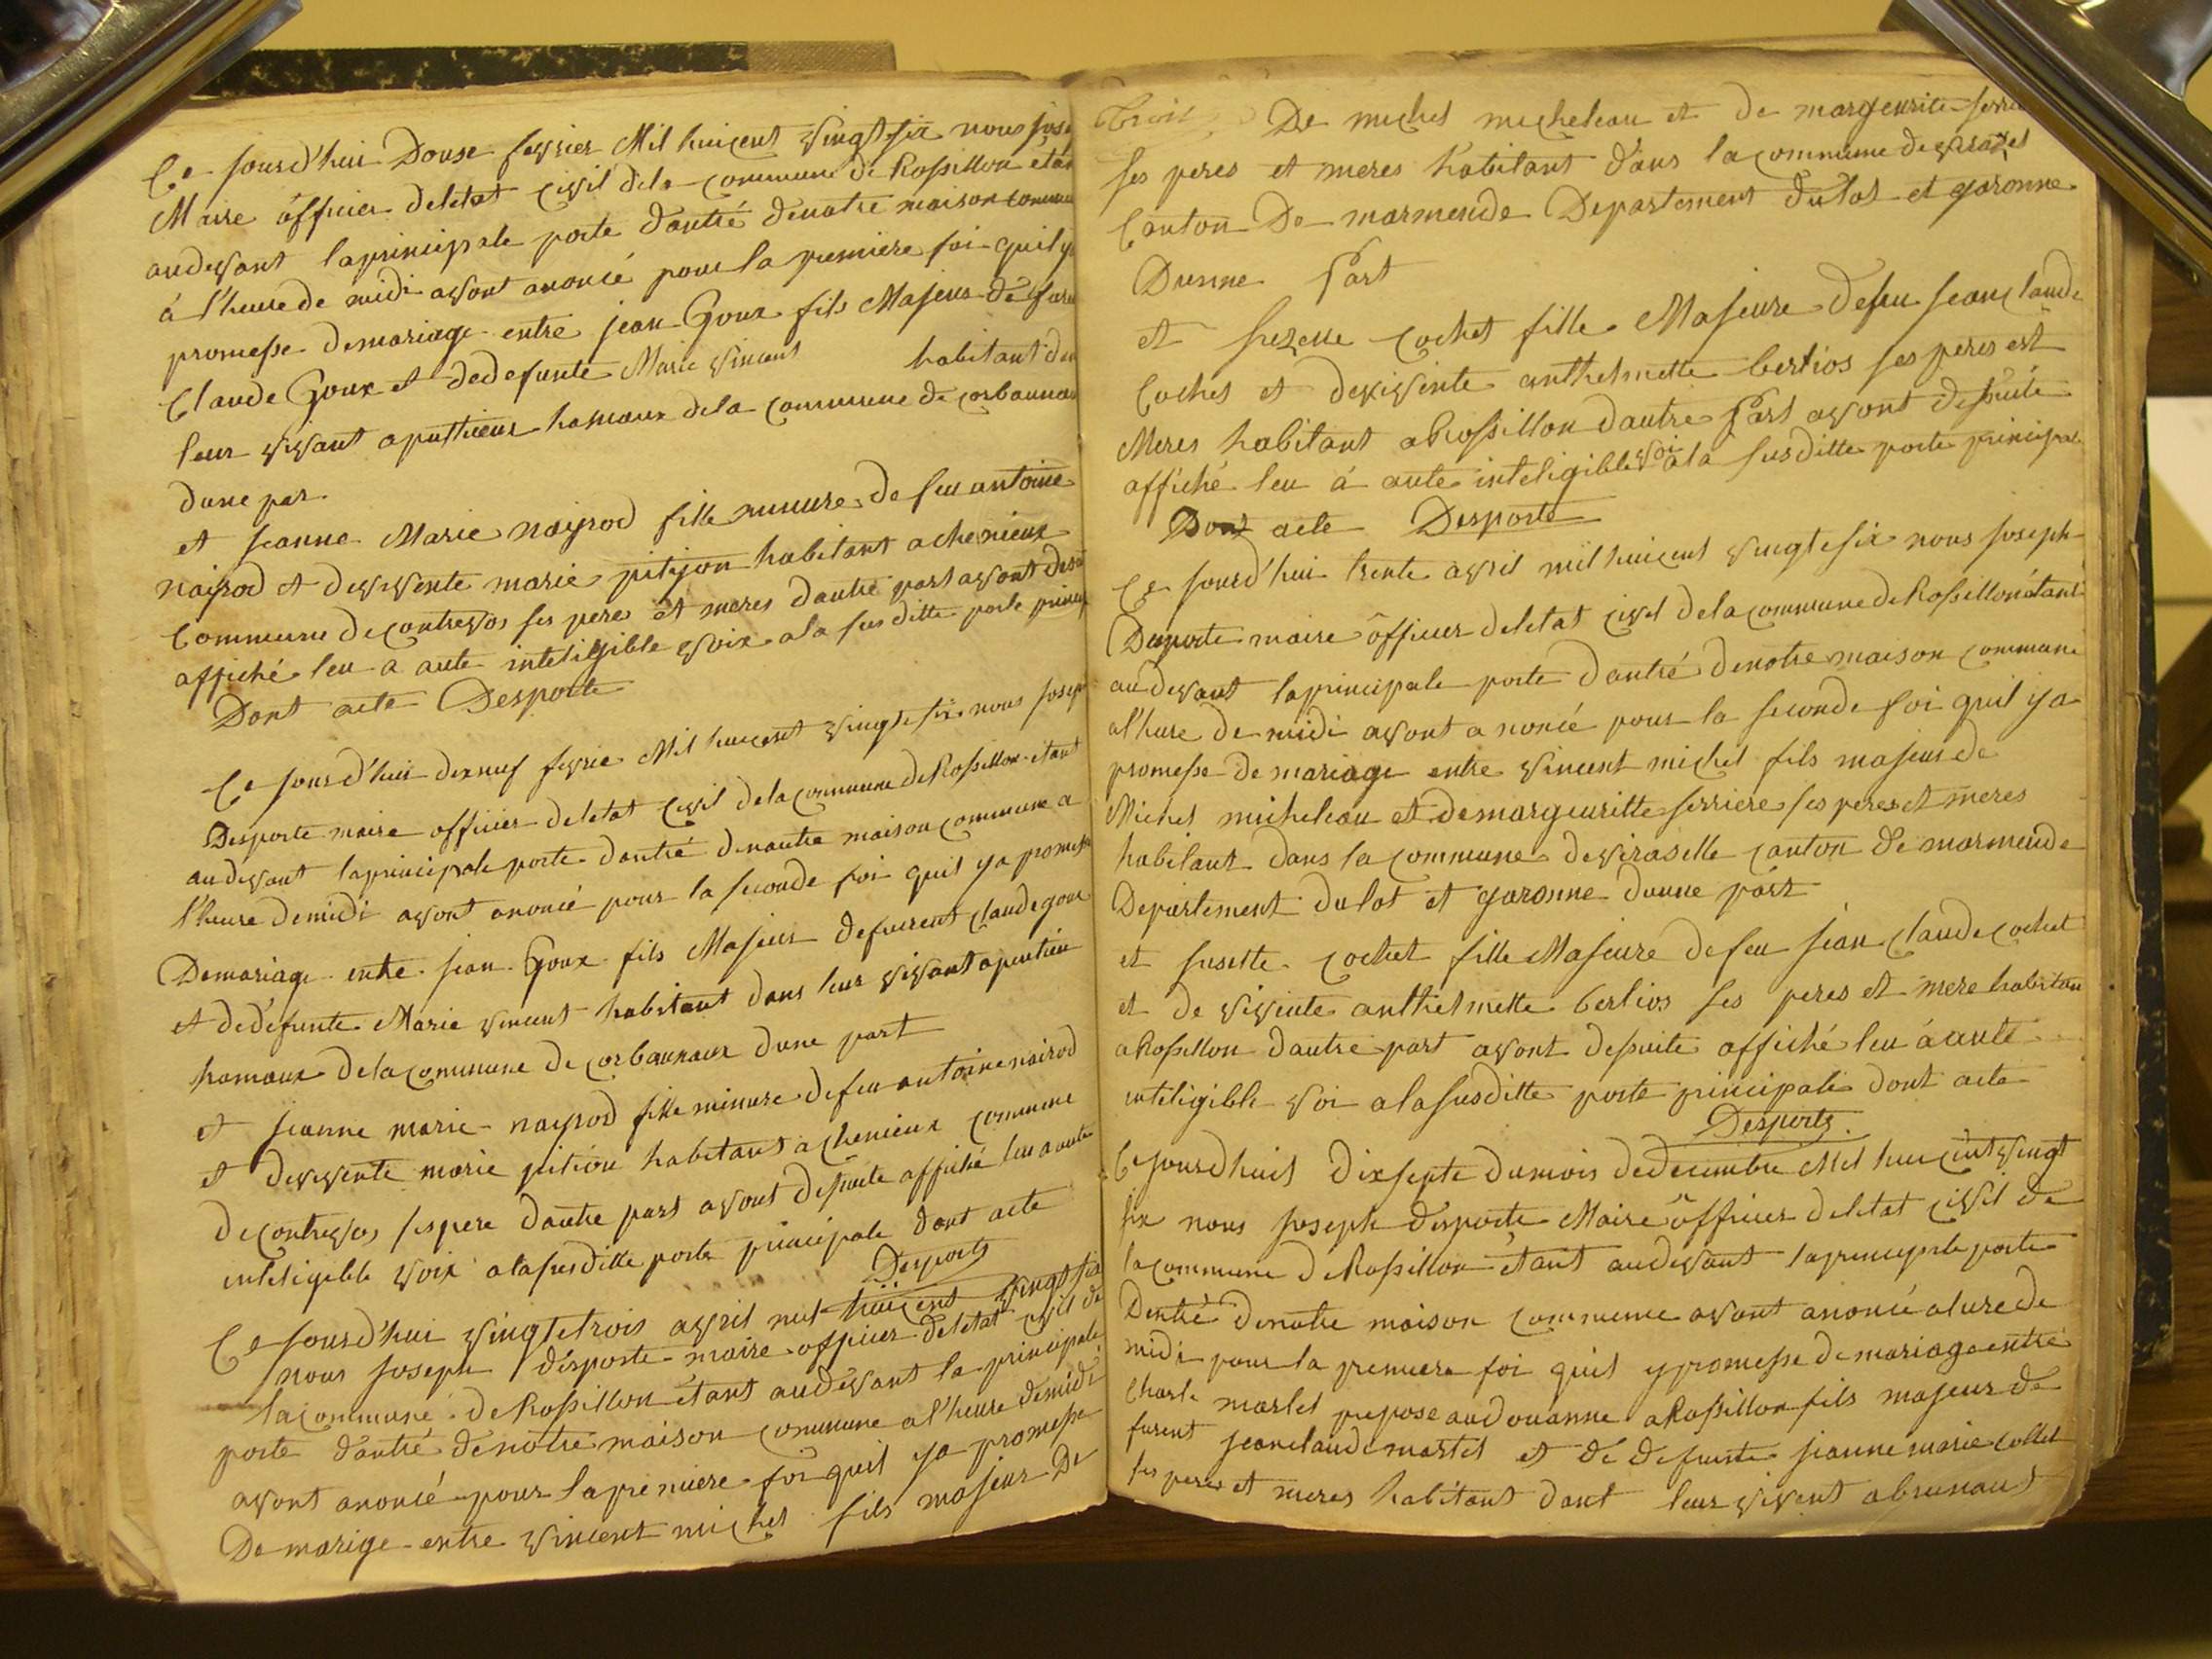 Ce Jourd'hui Douse fevrier Mil huicent vingt six nous
Maire officier deletat civil dela commune de Rossillon
audevant laprincipale porte dantré denotre maison
à l'heure de midi avont anoncé pour la premiere foi quil
promesse demariage entre jean Goux fils Majeur de
Claude Goux et dedefunte Marie vincent habitant
leur vivant aputhieux hamaux dela commune de
dune par
et jeanne Marie nayrod fille mineure de feu antoine
nayrod et devivente marie pitjon habitant achemieux
Commune decontrevos ses pere et meres dautre part avont
affiché leu a aute inteligible voix ala susditte porte
Dont acte Desporte
Ce Jourd'hui dixneuf fevrie Mil huicent vingt six nous
Desporte maire officier deletat civil delacommune deRossillon etant
audevant laprincipale porte dantré denautre maison commune a
l'heure demidi avont anoncé pour la seconde foi quil ya promesse
Demariage entre jean Goux fils Majeur defeurent claude goux
et dedefunte Marie vincent habitant dans leur vivant
hamaux delacommune de corbaunaux dune part
et jeanne marie nayrod fille mineure defeu antoine nairod
et devivente marie pition habitant achemieux commune
decontrevos ses pere dautre part avont desuite affiché leu aaute
inteligible voix alasusditte porte principale dont acte
Desporte
Ce Jourd'hui vingtetrois avril mil huicent vingt six
nous joseph desporte maire officier deletat civil de
lacommune deRossillon étant audevant la principale
porte dantré denotre maison commune a l'heure demidi
avont anoncé pour lapremiere foi quil ya promesse
De marige entre vincent michel fils majeur De
De michel micheleau et de margeurite
ses peres et meres habitant dans lacommune de
Canton De marmende Departement du lot et garonne
Dunne Part
et susette cochet fille Majeure defeu jean claude
Cochet et devivente anthelmette berlios ses peres est
Meres habitant aRossillon dautre Part avont desuite
affiché leu à aute inteligible voi ala susditte porte principale
Dont acte Desporte
Ce Jourd'hui trente avril mil huicent vingtesix nous joseph
Desporte maire officier deletat civil delacommune deRossillon étant
audevant laprincipale porte dantré denotre maison commune
al'hure de midi avont anoncé pour la seconde foi quil ya
promesse de mariage entre vincent michel fils majeur de
Michel micheleau et demargeuritte ferriere ses peres et meres
habitant dans la commune deviraselle canton de marmende
Departement dulot et garonne dunne part
et susette cochet fille Majeure defeu jean claude cochet
et de vivente anthelmette berlios ses peres et mere habitan
aRossillon dautre part avont desuite affiché leu àaute
inteligible voi alasusditte porte principale dont acte
Desporte.
Ce jourdhuit dixsepte dumois dedecembre Mil huicent vingt
six nous joseph desporte Maire officier deletat civil de
lacommune deRossillon étant audevant laprincipale porte
Dentré denotre maison commune avont anoncé alure de
midi pour la premiere foi quil ypromesse demariage entre
Charle martel prepose audouanne aRossillon fils majeur de
furent jeanclaude martel et de defunte jeanne marie collet
ses peres et meres habitant dant leur vivent